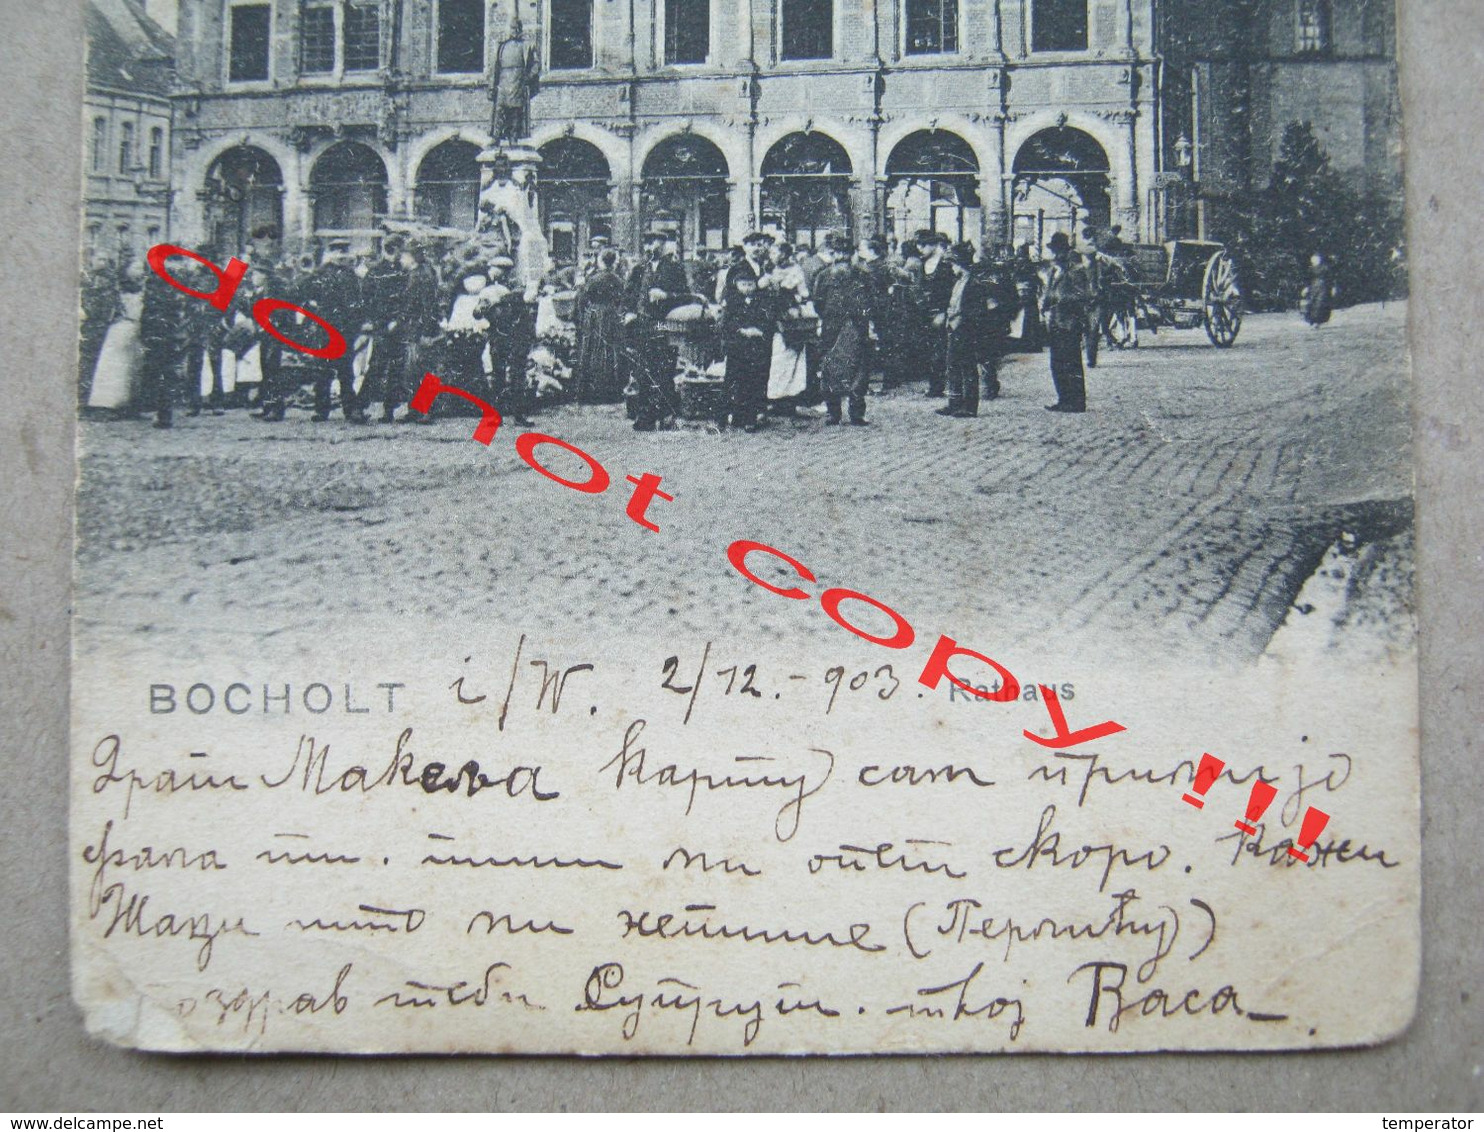 do not copy !!!
BOCHOLT i/W. 2/12.-903. Rathaus
Драги Макса карту сам примијо
фала ти. пиши ми опет скоро. Кажи
Жаци што ми не пише (Перошићу)
поздрав теби Супруги. твој Васа
www.delcampe.net
temperator